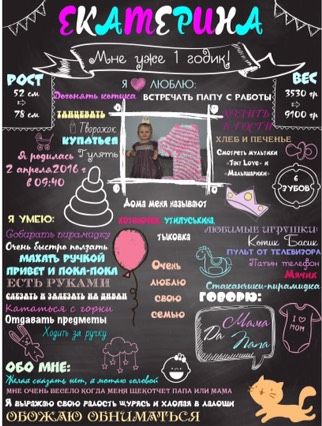 ЕКАТЕРИНА
Мне уже 1 годик!
РОСТ
52 см
78 см
ВЕС
3530 гр.
9100 гр.
Я ЛЮБЛЮ:
Догонять котика
ВСТРЕЧАТЬ ПАПУ С РАБОТЫ
ТАНЦЕВАТЬ
Творожок
КУПАТЬСЯ
Гулять
ХОДИТЬ
В ГОСТИ
ХЛЕБ И ПЕЧЕНЬЕ
Смотреть мультики
«Tiny Love» и
«Малышарики»
Я родилась
2 апреля 2016 г
в 09:40
6
ЗУБОВ
Дома меня называют
КНОПОЧКА, УТИПУСЬКА,
ТЫКОВКА
Я УМЕЮ:
Собирать пирамидку
Очень быстро ползать
МАХАТЬ РУЧКОЙ
ПРИВЕТ И ПОКА-ПОКА
ЕСТЬ РУКАМИ
СЛЕЗАТЬ И ЗАЛЕЗАТЬ НА ДИВАН
Кататься с горки
Отдавать предметы
Ходить за ручку
Очень
люблю
свою
семью
ЛЮБИМЫЕ ИГРУШКИ:
Котик Басик
ПУЛЬТ ОТ ТЕЛЕВИЗОРА
Папин телефон
Мячик
Стаканчики-пирамидка
ГОВОРЮ:
Мама
Да
Папа
I ♥
MOM
ОБО МНЕ:
Желая сказать нет, я мотаю головой
МНЕ ОЧЕНЬ ВЕСЕЛО КОГДА МЕНЯ ЩЕКОТЧЕТ ПАПА ИЛИ МАМА
Я выражаю свою радость щурясь и хлопая в ладоши
ОБОЖАЮ ОБНИМАТЬСЯ